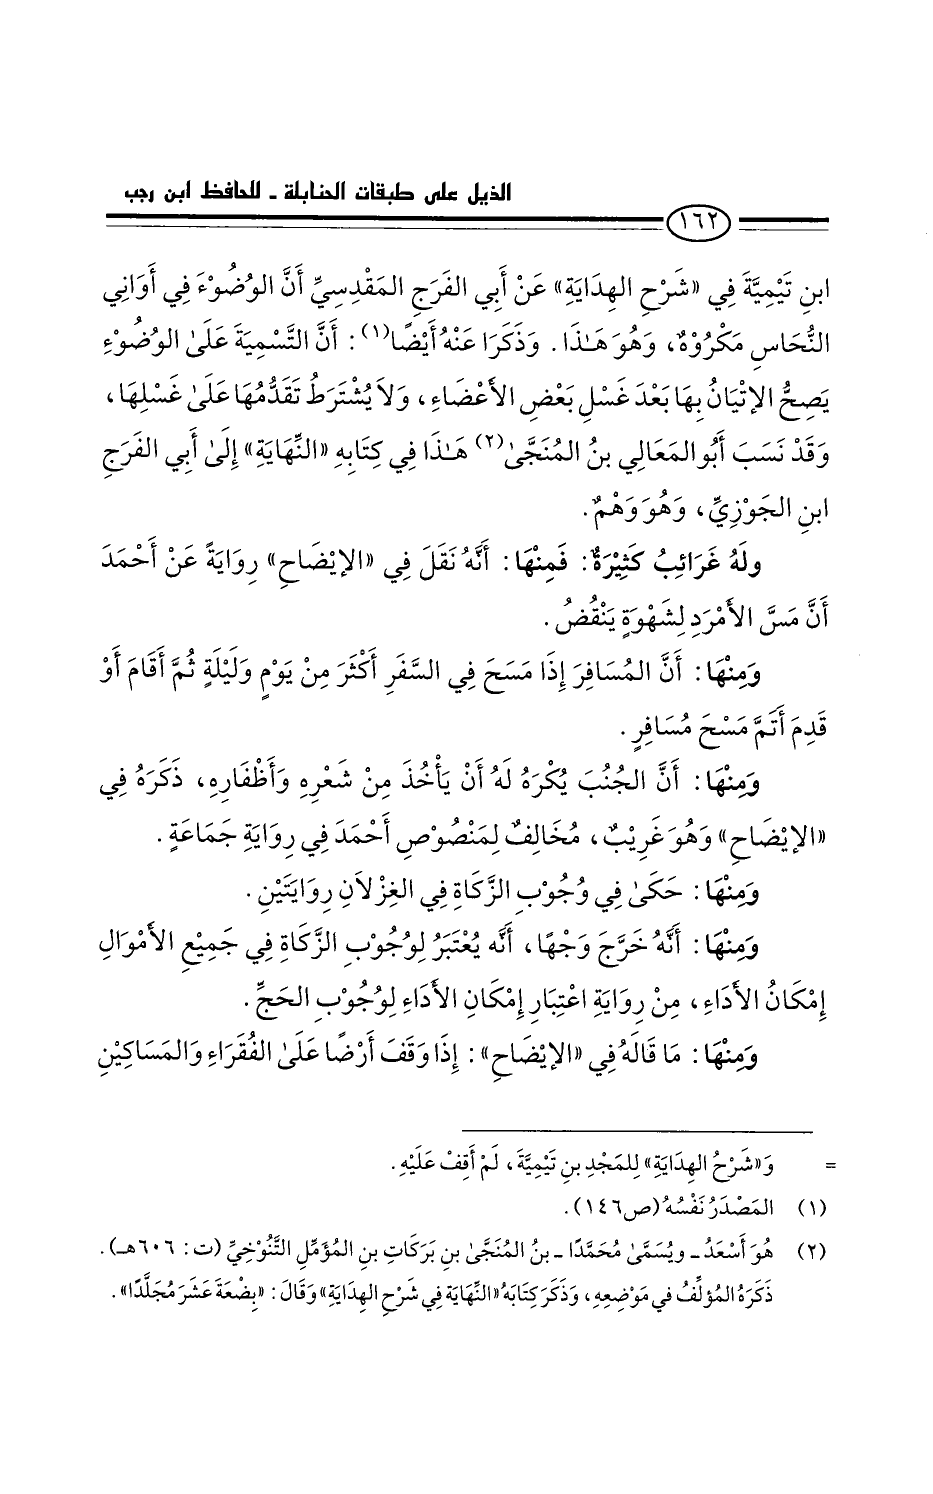 الذيل على طبقات الحنابلة - للحافظ ابن رجب
١٦٢
ابنِ تَيْمِيَّةَ فِي «شَرْحِ الهِدَايَةِ» عَنْ أَبِي الفَرَجِ المَقْدِسِيِّ أَنَّ الوُضُوْءَ فِي أَوَانِي
النُّحَاسِ مَكْرُوْهٌ، وَهُوَ هَـٰذَا. وَذَكَرَا عَنْهُ أَيْضًا(١): أَنَّ التَّسْمِيَةَ عَلَىٰ الوُضُوْءِ
يَصِحُّ الإِتْيَانُ بِهَا بَعْدَ غَسْلِ بَعْضِ الأَعْضَاءِ، وَلاَ يُشْتَرَطُ تَقَدُّمُهَا عَلَىٰ غَسْلِهَا،
وَقَدْ نَسَبَ أَبُو المَعَالِي بنُ المُنَجَّىٰ(٢) هَـٰذَا فِي كِتَابِهِ «النِّهَايَةِ» إِلَىٰ أَبِي الفَرَجِ
ابنِ الجَوْزِيِّ، وَهُوَ وَهْمٌ.
ولَهُ غَرَائِبُ كَثِيْرَةٌ: فَمِنْهَا: أَنَّهُ نَقَلَ فِي «الإِيْضَاحِ» رِوَايَةً عَنْ أَحْمَدَ
أَنَّ مَسَّ الأَمْرَدِ لِشَهْوَةٍ يَنْقُضُ.
وَمِنْهَا: أَنَّ المُسَافِرَ إِذَا مَسَحَ فِي السَّفَرِ أَكْثَرَ مِنْ يَوْمٍ وَلَيْلَةٍ ثُمَّ أَقَامَ أَوْ
قَدِمَ أَتَمَّ مَسْحَ مُسَافِرٍ.
وَمِنْهَا: أَنَّ الجُنُبَ يُكْرَهُ لَهُ أَنْ يَأْخُذَ مِنْ شَعْرِهِ وَأَظْفَارِهِ، ذَكَرَهُ فِي
«الإِيْضَاحِ» وَهُوَ غَرِيْبٌ، مُخَالِفٌ لِمَنْصُوْصِ أَحْمَدَ فِي رِوَايَةِ جَمَاعَةٍ.
وَمِنْهَا: حَكَىٰ فِي وُجُوْبِ الزَّكَاةِ فِي الغِزْلاَنِ رِوَايَتَيْنِ.
وَمِنْهَا: أَنَّهُ خَرَّجَ وَجْهًا، أَنَّه يُعْتَبَرُ لِوُجُوْبِ الزَّكَاةِ فِي جَمِيْعِ الأَمْوَالِ
إِمْكَانُ الأَدَاءِ، مِنْ رِوَايَةِ اعْتِبَارِ إِمْكَانِ الأَدَاءِ لِوُجُوْبِ الحَجِّ.
وَمِنْهَا: مَا قَالَهُ فِي «الإِيْضَاحِ»: إِذَا وَقَفَ أَرْضًا عَلَىٰ الفُقَرَاءِ وَالمَسَاكِيْنِ
= وَ«شَرْحُ الهِدَايَةِ» لِلمَجْدِ بنِ تَيْمِيَّةَ، لَمْ أَقِفْ عَلَيْهِ.
(١) المَصْدَرُ نَفْسُهُ (ص١٤٦).
(٢) هُوَ أَسْعَدُ - ويُسَمَّىٰ مُحَمَّدًا - بنُ المُنَجَّىٰ بنِ بَرَكَاتِ بنِ المُؤَمِّلِ التَّنُوْخِيِّ (ت: ٦٠٦هـ).
ذَكَرَهُ المُؤَلِّفُ في مَوْضِعِهِ، وَذَكَرَ كِتَابَهُ «النِّهَايَةِ فِي شَرْحِ الهِدَايَةِ» وَقَالَ: «بِضْعَةَ عَشَرَ مُجَلَّدًا».